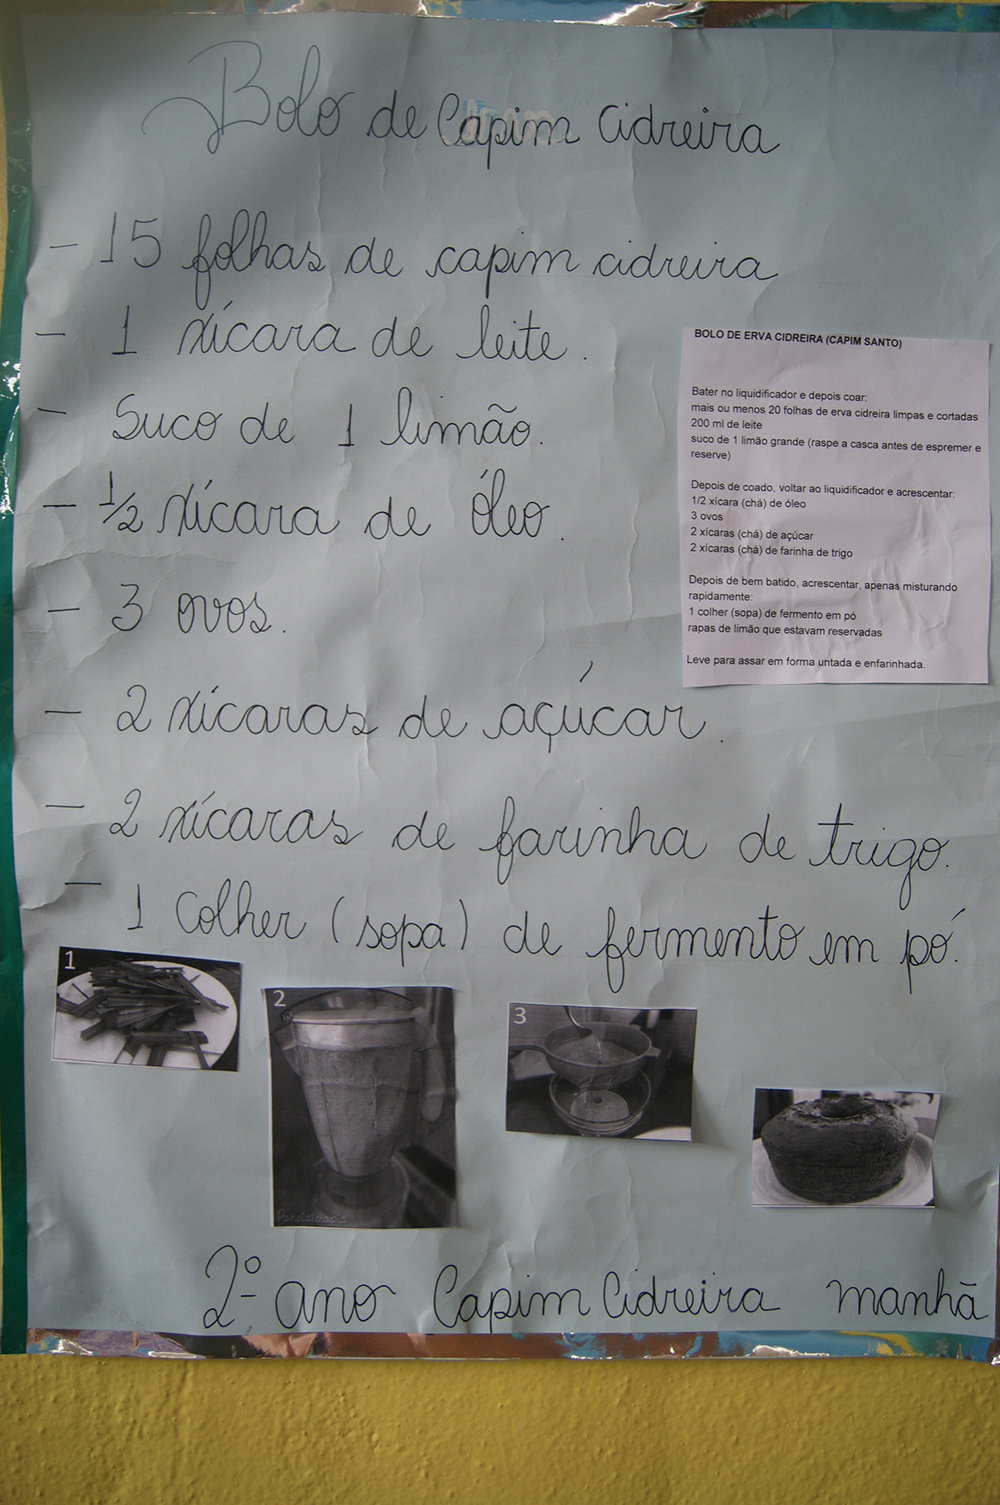 Bolo de Capim Cidreira
- 15 folhas de capim cidreira
- 1 xícara de leite.
- Suco de 1 limão.
- 1/2 xícara de óleo.
- 3 ovos.
- 2 xícaras de açúcar.
- 2 xícaras de farinha de trigo.
- 1 Colher (sopa) de fermento em pó.
BOLO DE ERVA CIDREIRA (CAPIM SANTO)
Bater no liquidificador e depois coar:
mais ou menos 20 folhas de erva cidreira limpas e cortadas
200 ml de leite
suco de 1 limão grande (raspe a casca antes de espremer e
reserve)
Depois de coado, voltar ao liquidificador e acrescentar:
1/2 xícara (chá) de óleo
3 ovos
2 xícaras (chá) de açúcar
2 xícaras (chá) de farinha de trigo
Depois de bem batido, acrescentar, apenas misturando
rapidamente:
1 colher (sopa) de fermento em pó
rapas de limão que estavam reservadas
Leve para assar em forma untada e enfarinhada.
1
2
3
2º ano Capim Cidreira manhã